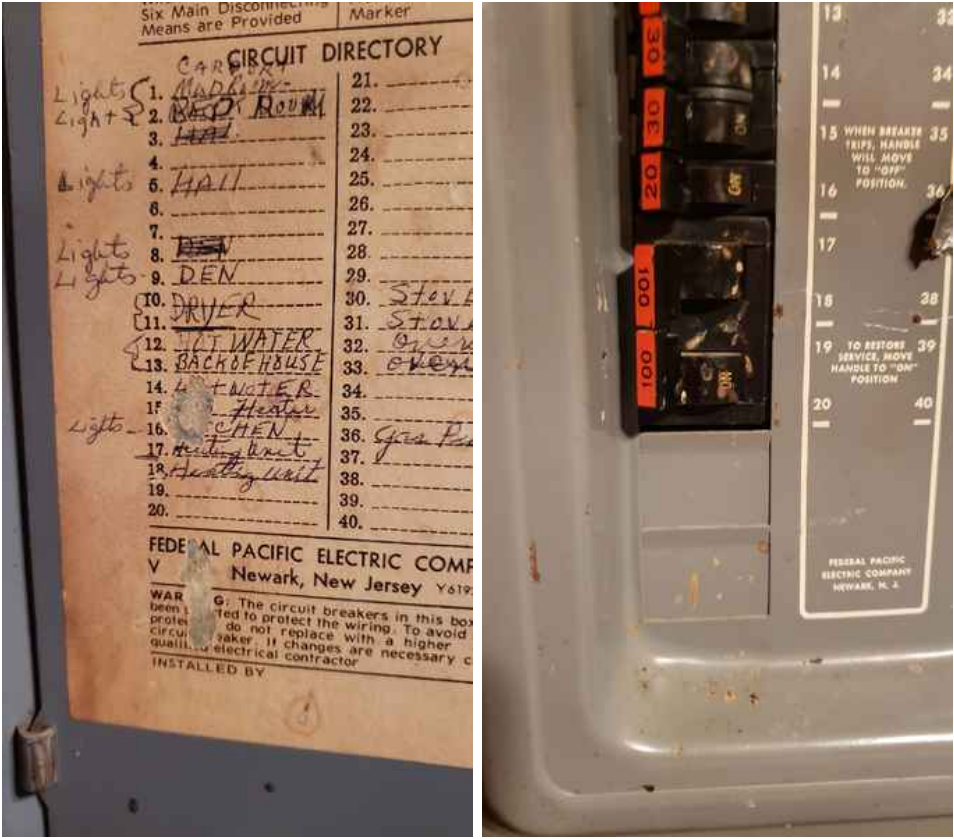 Six Main Disconnecting
Means are Provided
Marker
CIRCUIT DIRECTORY
CARPORT
Lights 1.
Lights 2. ROOM
3. Hall
4.
Lights 5. HAll
6.
7.
Lights 8. DEN
Lights 9. DEN
10. DRYER
11.
12. HOT WATER
13. BACK OF HOUSE
14. HOT WATER
15 Heater
Lights 16. CHEN
17. Heating Unit
18. Heating Unit
19.
20.
21.
22.
23.
24.
25.
26.
27.
28.
29.
30. Stov
31. Stov
32. Oven
33. Oven
34.
35.
36. Gas
37.
38.
39.
40.
FEDERAL PACIFIC ELECTRIC COMP
V Newark, New Jersey Y619
WAR G: The circuit breakers in this box
been ted to protect the wiring. To avoid
protec do not replace with a higher
circui eaker. If changes are necessary c
qualifi electrical contractor
INSTALLED BY
30
30
20
100
100
ON
ON
ON
13
14
15
16
17
18
19
20
WHEN BREAKER
TRIPS, HANDLE
WILL MOVE
TO "OFF"
POSITION.
TO RESTORE
SERVICE, MOVE
HANDLE TO "ON"
POSITION
34
35
36
38
39
40
FEDERAL PACIFIC
ELECTRIC COMPANY
NEWARK, N. J.